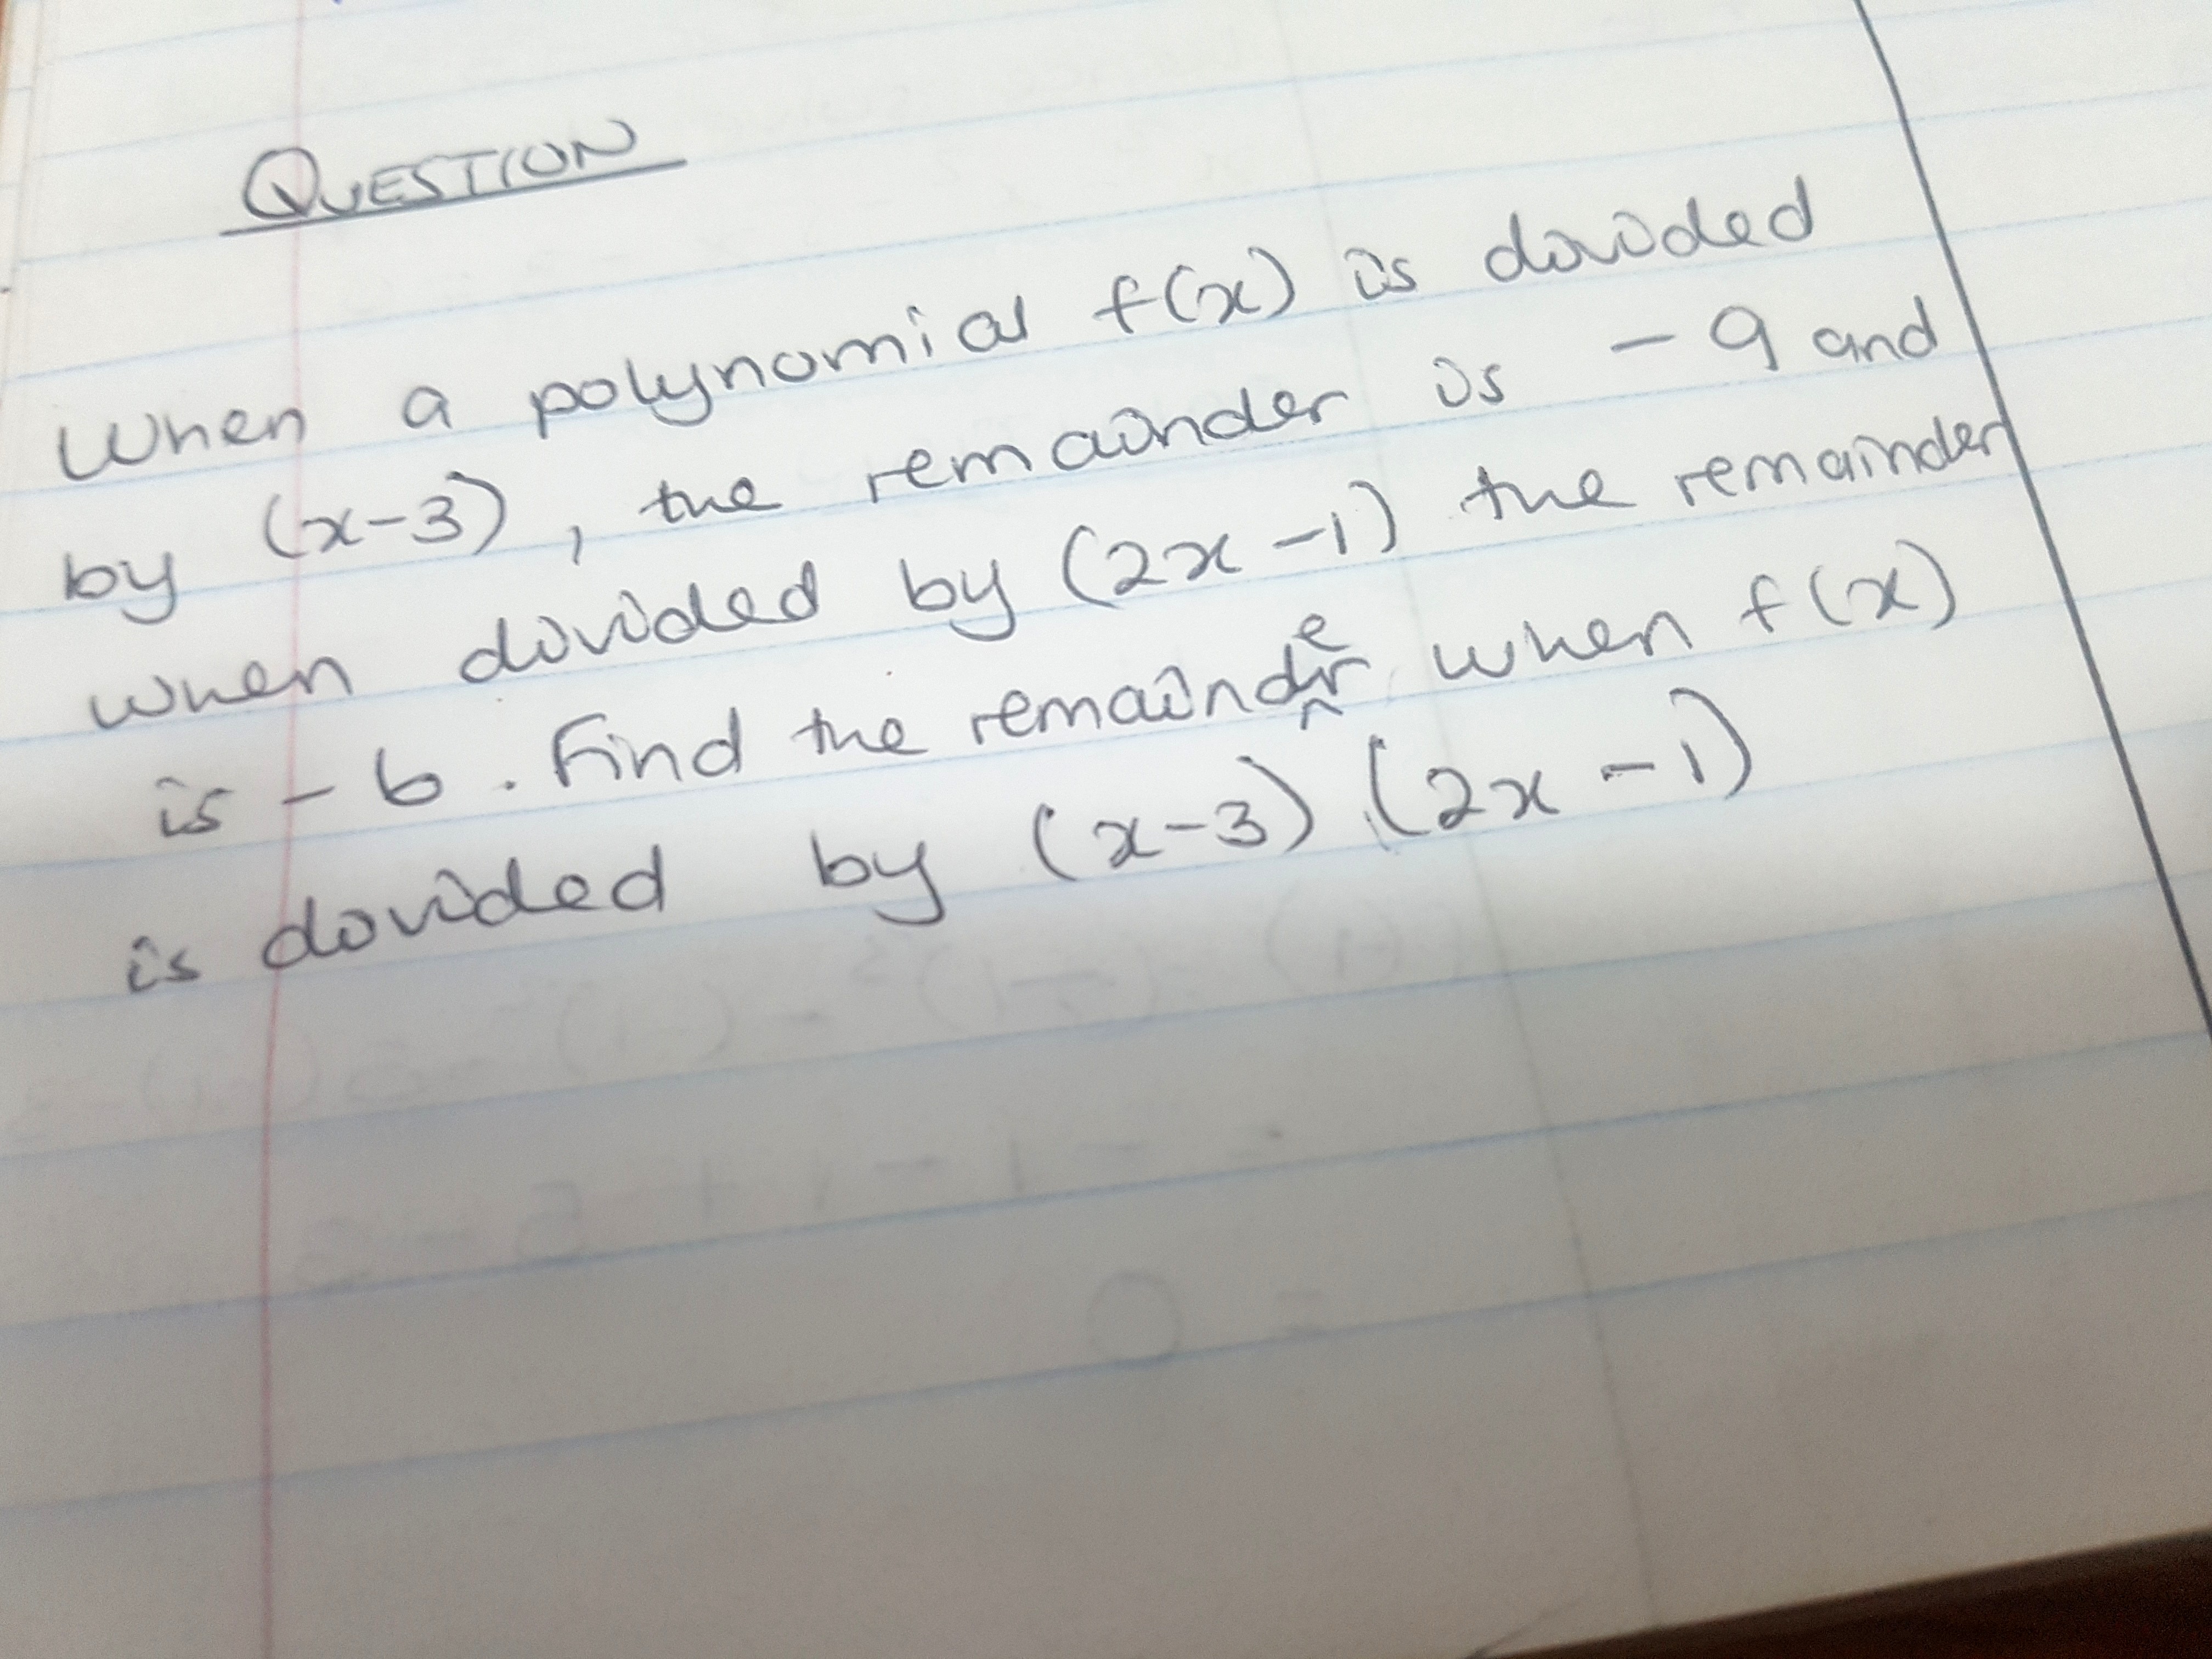 QUESTION
When a polynomial f(x) is divided
by (x-3), the remainder is -9 and
when divided by (2x-1) the remainder
is -6. Find the remainder when f(x)
is divided by (x-3)(2x-1)